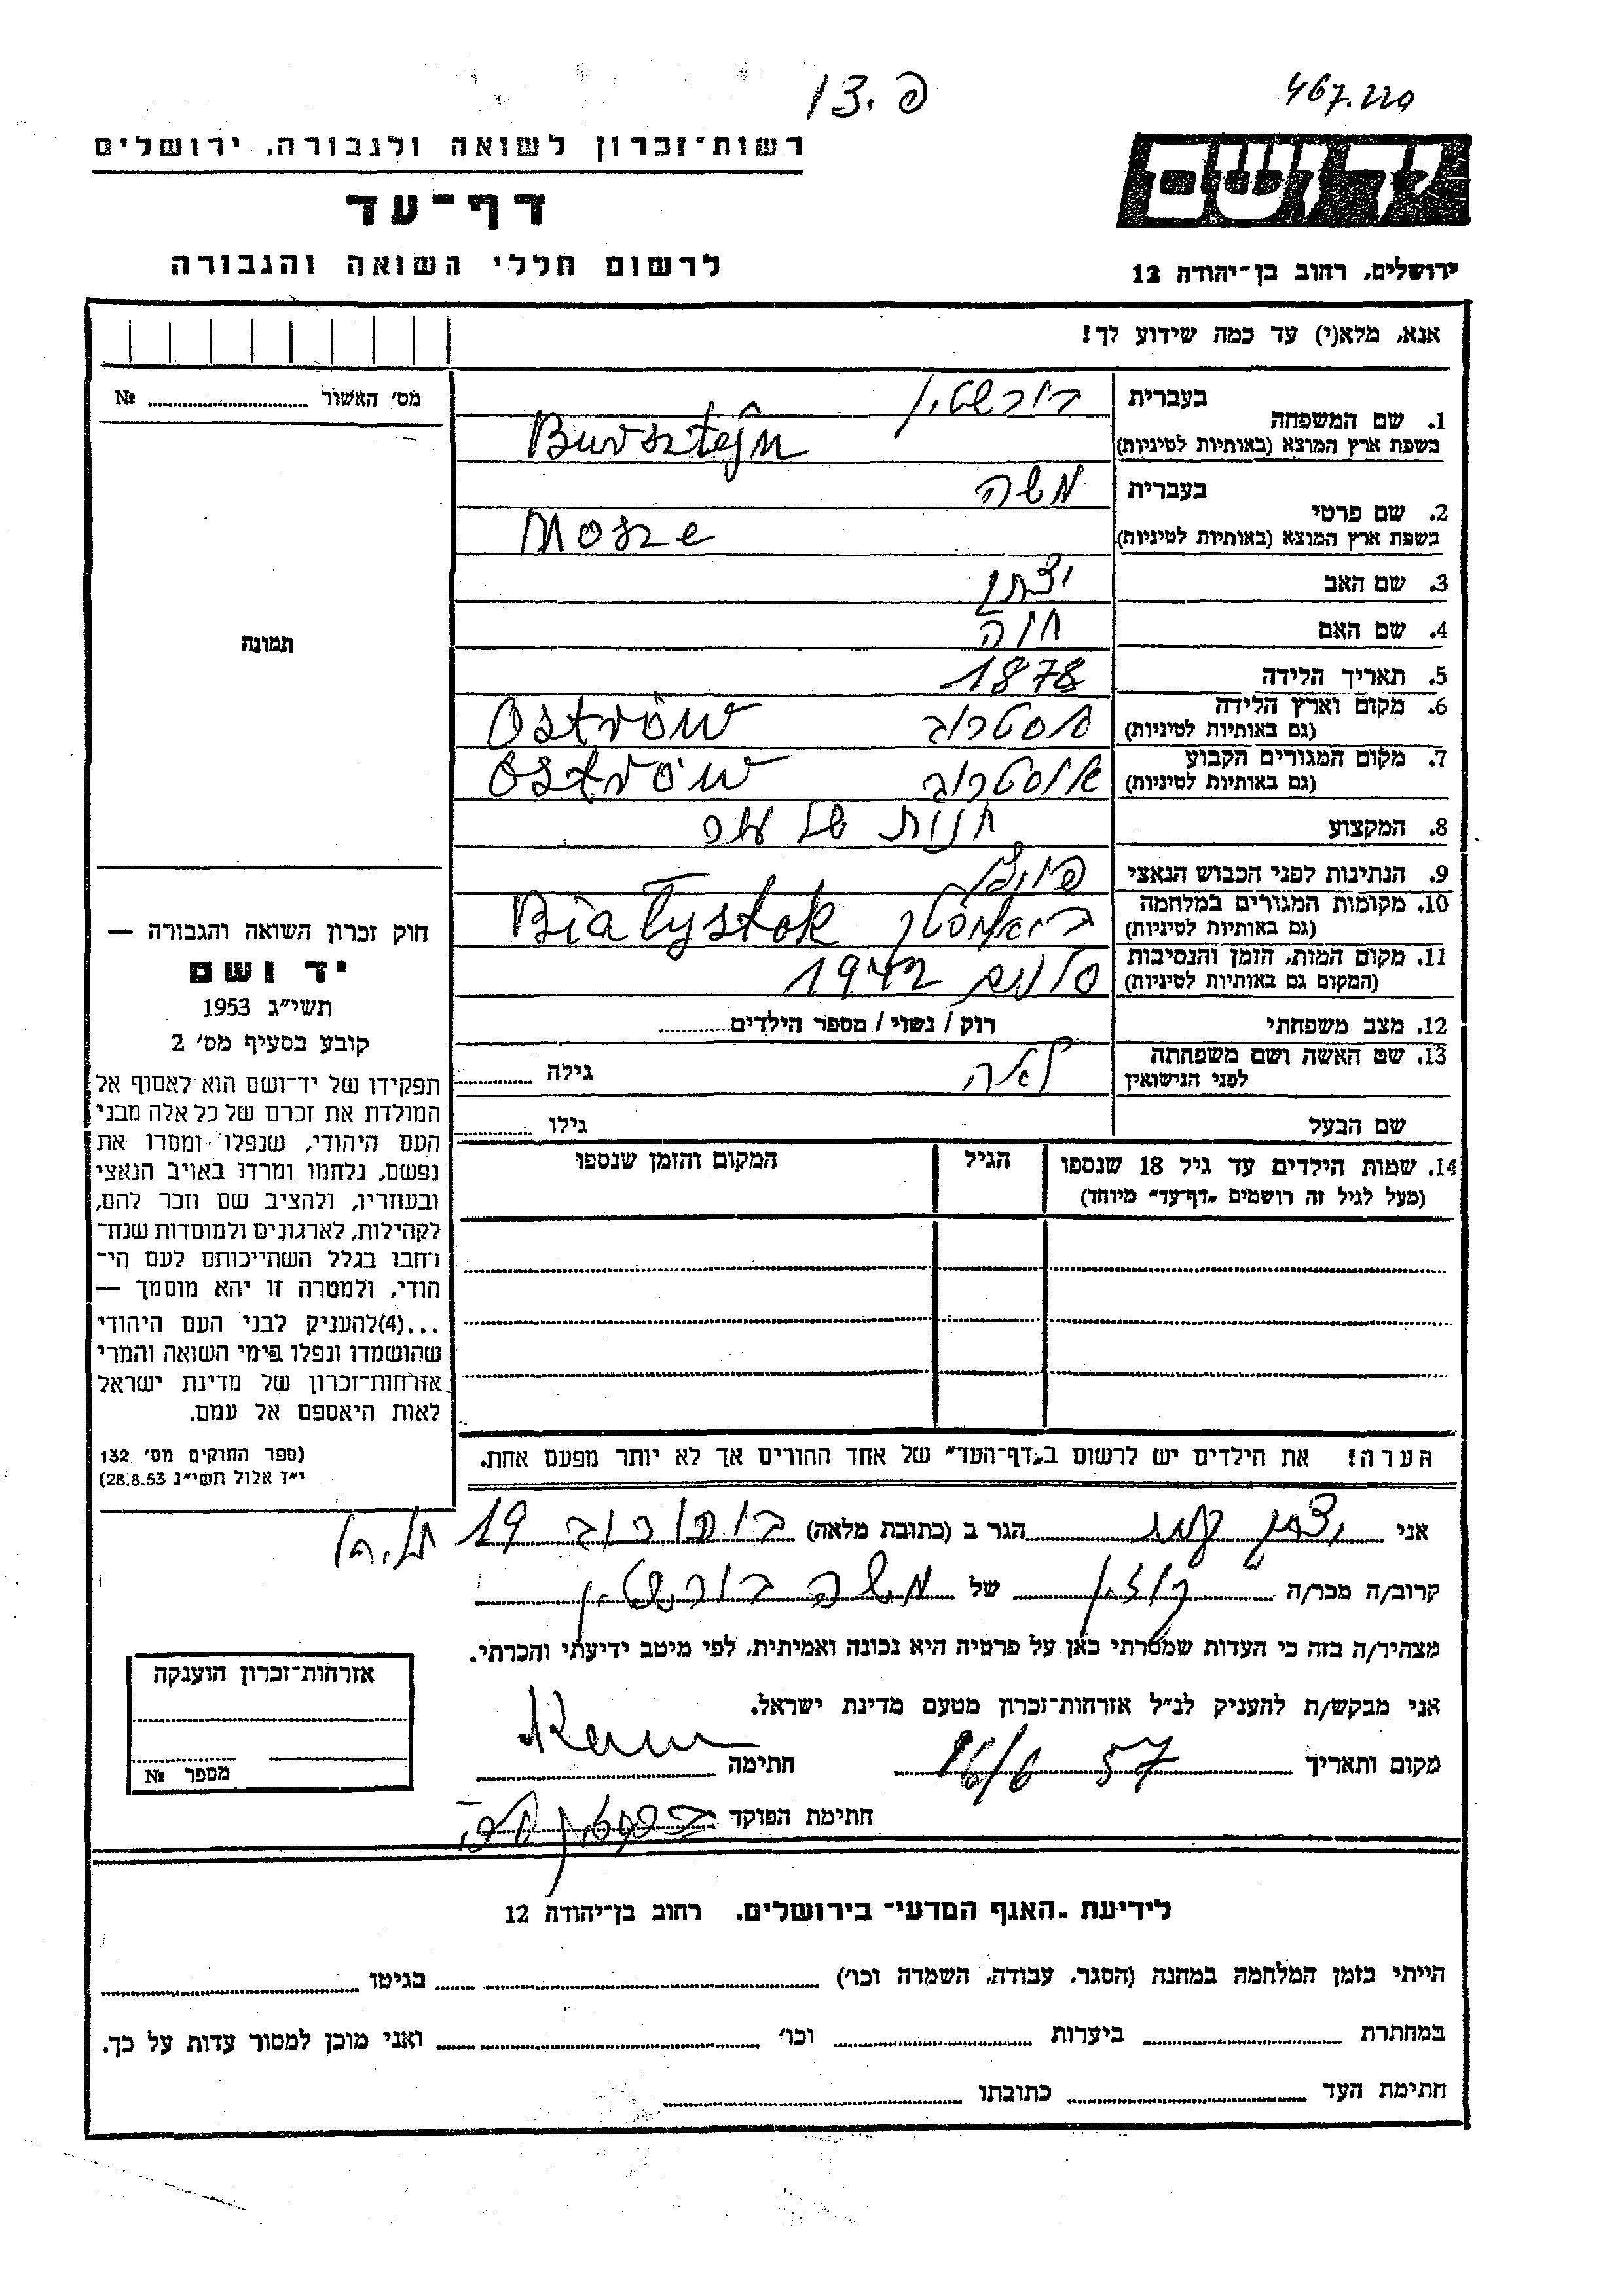 פ. 13/
467.220
רשות־זכרון לשואה ולגבורה, ירושלים
יד ושם
דף־עד
לרשום חללי השואה והגבורה
ירושלים, רחוב בן־יהודה 12
אנא, מלא(י) עד כמה שידוע לך!
מס׳ האשור № 
בעברית בורשטין
1. שם המשפחה
בשפת ארץ המוצא (באותיות לטיניות) Bursztejn
בעברית משה
2. שם פרטי
בשפת ארץ המוצא (באותיות לטיניות) Mosze
3. שם האב יצחק
4. שם האם חוה
תמונה
5. תאריך הלידה 1878
6. מקום וארץ הלידה אוסטרוב Ostrów
(גם באותיות לטיניות)
7. מקום המגורים הקבוע אוסטרוב Ostrów
(גם באותיות לטיניות)
8. המקצוע חנות של
9. הנתינות לפני הכבוש הנאצי
10. מקומות המגורים במלחמה Białystok
(גם באותיות לטיניות)
11. מקום המות, הזמן והנסיבות סלונים 1942
(המקום גם באותיות לטיניות)
12. מצב משפחתי רוק / נשוי / מספר הילדים
13. שם האשה ושם משפחתה לאה גילה
לפני הנישואין
שם הבעל גילו
14. שמות הילדים עד גיל 18 שנספו הגיל המקום והזמן שנספו
(מעל לגיל זה רושמים „דף־עד” מיוחד)
חוק זכרון השואה והגבורה —
יד ושם
תשי״ג 1953
קובע בסעיף מס׳ 2
תפקידו של יד־ושם הוא לאסוף אל
המולדת את זכרם של כל אלה מבני
העם היהודי, שנפלו ומסרו את
נפשם, נלחמו ומרדו באויב הנאצי
ובעוזריו, ולהציב שם וזכר להם,
לקהילות, לארגונים ולמוסדות שנח־
רחבו בגלל השתייכותם לעם הי־
הודי, ולמטרה זו יהא מוסמך —
...(4)להעניק לבני העם היהודי
שהושמדו ונפלו בימי השואה והמרי
אזרחות־זכרון של מדינת ישראל
לאות היאספם אל עמם.
(ספר החוקים מס׳ 132
י״ז אלול תשי״ג 28.8.53)
הערה! את הילדים יש לרשום ב„דף־העד” של אחד ההורים אך לא יותר מפעם אחת.
אני יצחק הגר ב (כתובת מלאה) 19
קרוב/ה מכר/ה של משה בורשטין
מצהיר/ה בזה כי העדות שמסרתי כאן על פרטיה היא נכונה ואמיתית, לפי מיטב ידיעתי והכרתי.
אני מבקש/ת להעניק לנ״ל אזרחות־זכרון מטעם מדינת ישראל.
מקום ותאריך 16/6 57 חתימה
חתימת הפוקד
אזרחות־זכרון הוענקה
מספר №
לידיעת „האגף המדעי” בירושלים, רחוב בן־יהודה 12
הייתי בזמן המלחמה במחנה (הסגר, עבודה, השמדה וכו׳) בגיטו
במחתרת ביערות וכו׳ ואני מוכן למסור עדות על כך.
חתימת העד כתובתו